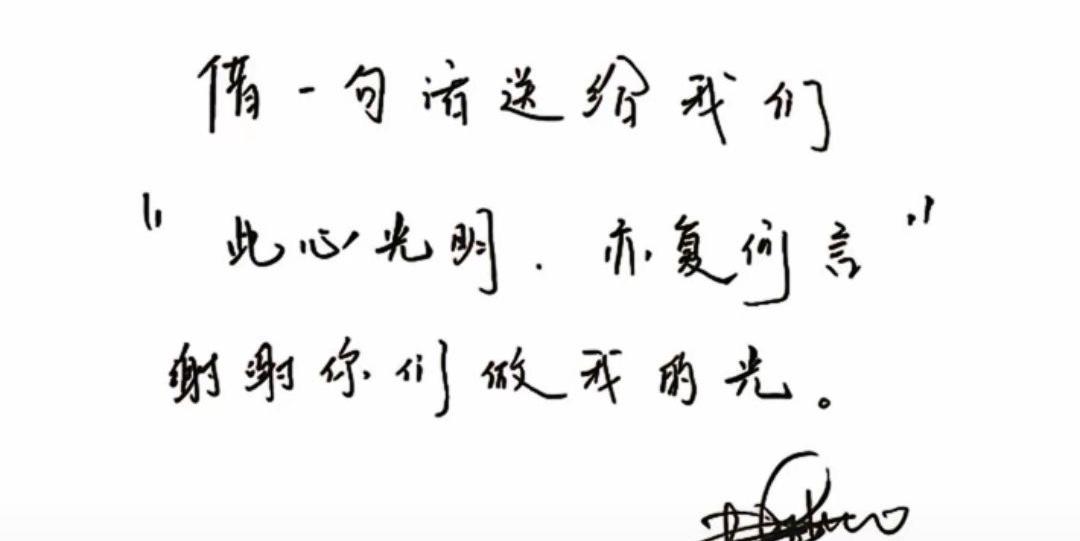 借一句话送给我们
"此心光明.亦复何言"
谢谢你们做我的光。